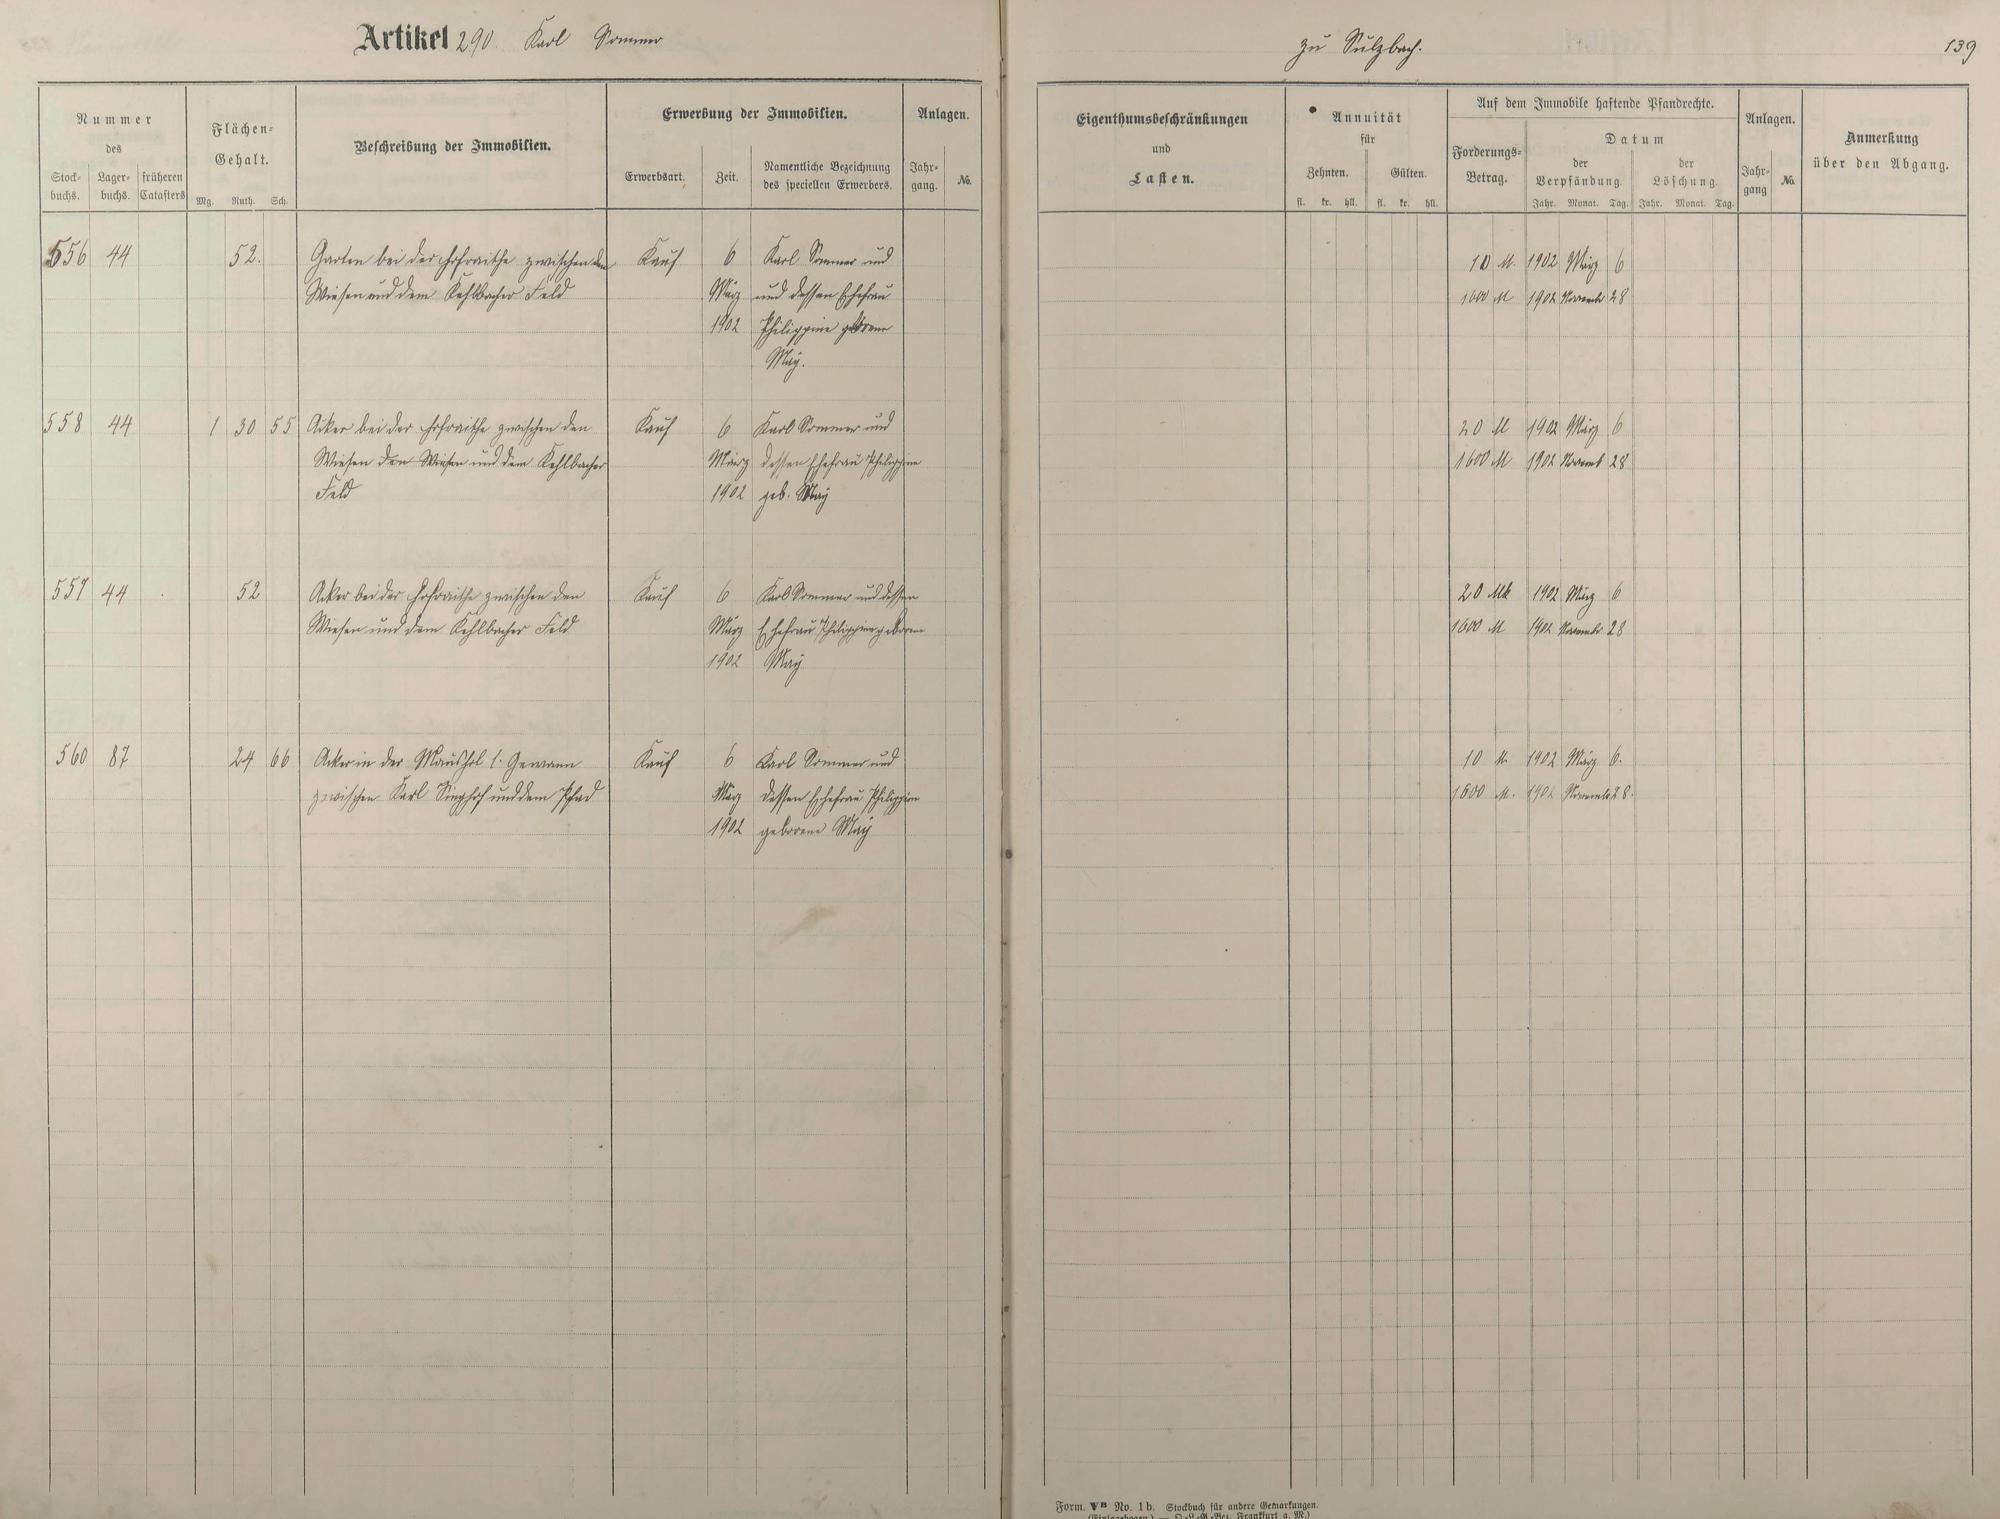 Artikel 290. Karl Sommer
zu Sulzbach.
139
Nummer
des
Stock-
buchs.
Lager-
buchs.
früheren
Catasters
Flächen-
Gehalt.
Mg. Ruth. Sch.
Beschreibung der Immobilien.
Erwerbung der Immobilien.
Erwerbsart.
Zeit.
Namentliche Bezeichnung
des speciellen Erwerbers.
Anlagen.
Jahr-
gang.
No.
Eigenthumsbeschränkungen
und
Lasten.
Annuität
für
Zehnten.
Gülten.
fl. kr. hll. fl. kr. hll.
Auf dem Immobile haftende Pfandrechte.
Forderungs-
Betrag.
Datum
der
Verpfändung.
der
Löschung.
Jahr. Monat. Tag. Jahr. Monat. Tag.
Anlagen.
Jahr-
gang
No.
Anmerkung
über den Abgang.
556 44 52. Garten bei der Hofraithe zwischen den Kauf 6 Karl Sommer und 10 M. 1902 März 6
Wiesen und dem Kehlbacher Feld März und dessen Ehefrau 1600 M 1902 November 28
1902 Philippine geborene
May.
558 44 1 30 55 Acker bei der Hofraithe zwischen den Kauf 6 Karl Sommer und 20 M 1902 März 6
Wiesen den Wiesen und dem Kehlbacher März dessen Ehefrau Philippine 1600 M 1902 Novemb 28
Feld 1902 geb. May
557 44 52 Acker bei der Hofraithe zwischen den Kauf 6 Karl Sommer und dessen 20 Mk 1902 März 6
Wiesen und dem Kehlbacher Feld März Ehefrau Philippine geborene 1600 M 1902 November 28
1902 May
560 87 24 66 Acker in der Maushol 1. Gewann Kauf 6 Karl Sommer und 10 M. 1902 März 6.
zwischen Karl Singhof und dem Pfad März dessen Ehefrau Philippine 1600 M. 1902 November 28.
1902 geborene May
Form. VB No. 1b. Stockbuch für andere Gemarkungen.
(Einlagebogen.) — O.-L.-G.-Bez. Frankfurt a. M.)